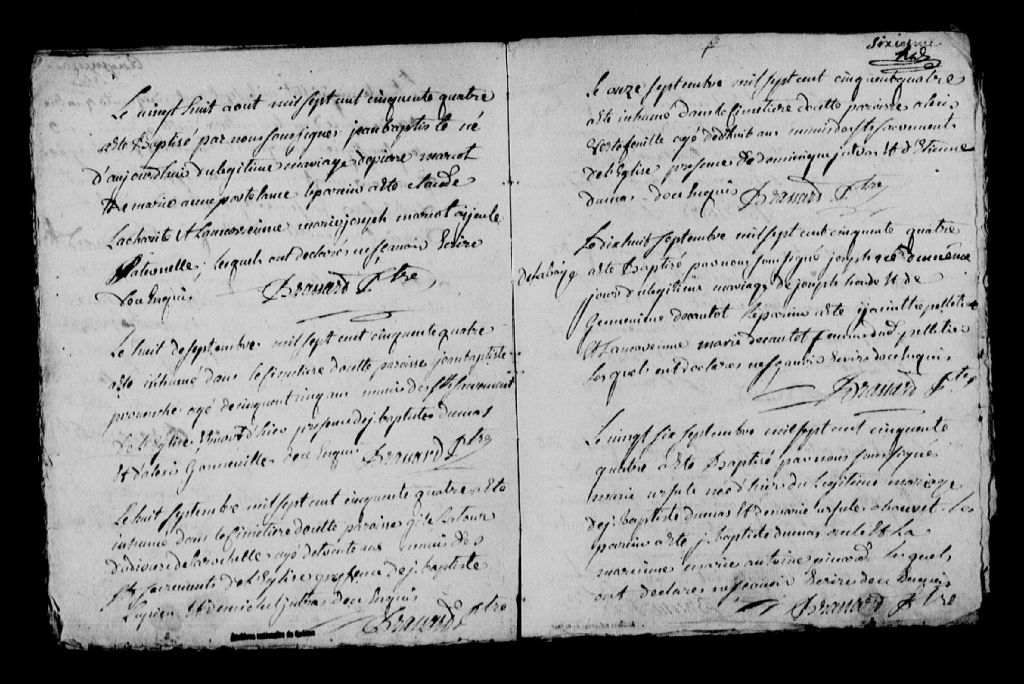 Le vingt huit aout mil sept cent cinquante quatre
a été Baptisé par nous soussigné jean baptiste né
d'aujourdhui du legitime mariage de pierre marcot
et de marie anne postelance le parain a été claude
Lacharité et la maraienne marie joseph marcot ayjeule
Paternelle lesquels ont declarés ne scavoir Ecrire
De ce Enquis Brassard Ptre
Le huit de septembre mil sept cent cinquante quatre
a été inhumé dans le cimetiere de cette paroisse jean baptiste
provenché agé de cinquante cinq ans munis des sts sacrements
de l'eglise mort d'hier presence de j. baptiste dumas
et d'alexis Gonneville de ce Enquis Brassard Ptre
Le huit septembre mil sept cent cinquante quatre a été
inhumé dans le cimetiere de cette paroisse
de la rochelle agé de trente ans munis des
sts sacrements de L'Eglise presence de j. baptiste
et de michel jutras de ce Enquis
Brassard Ptre
Archives nationales du Québec
sixieme
Le onze septembre mil sept cent cinquante quatre
a été inhumé dans le cimetiere de cette paroisse alexis
Portefeuille agé de dixhuit ans munis des sts sacrements
de L'Eglise presence de dominique jutras et d'Etienne
dumas de ce Enquis Brassard Ptre
Le dixhuit septembre mil sept cent cinquante quatre
a été Baptisé par nous soussigné joseph né du même
jour du legitime mariage de joseph houde et de
Gennevieve decautot le parain a été hyacinthe pelletie
et la maraienne marie decautot femme du d. pelletier
Lesquels ont declarés ne scavoir Ecrire de ce Enquis
Brassard Ptre
Le vingt six septembre mil sept cent cinquante
quatre a été Baptisé par nous soussigné
marie ursule née d'hier du legitime mariage
de j. baptiste dumas et de marie ursule chauvet Le
parain a été j. baptiste dumas oncle et La
maraienne marie antoine Lesquels
ont declarés ne scavoir Ecrire de ce Enquis
Brassard Ptre